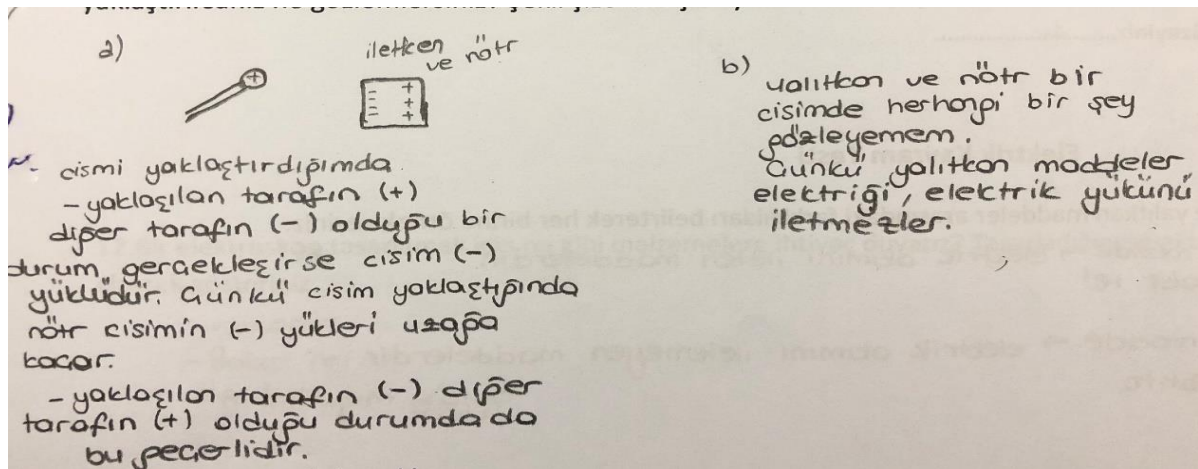 a)
iletken
ve nötr
+
- +
- +
- +
cismi yaklaştırdığımda
- yaklaşılan tarafın (+)
diğer tarafın (-) olduğu bir
durum gerçekleşirse cisim (-)
yüklüdür. Çünkü cisim yaklaştığında
nötr cisimin (-) yükleri uzağa
kaçar.
- yaklaşılan tarafın (-) diğer
tarafın (+) olduğu durumda da
bu geçerlidir.
b)
yalıtkan ve nötr bir
cisimde herhangi bir şey
gözleyemem.
Çünkü yalıtkan maddeler
elektriği, elektrik yükünü
iletmezler.